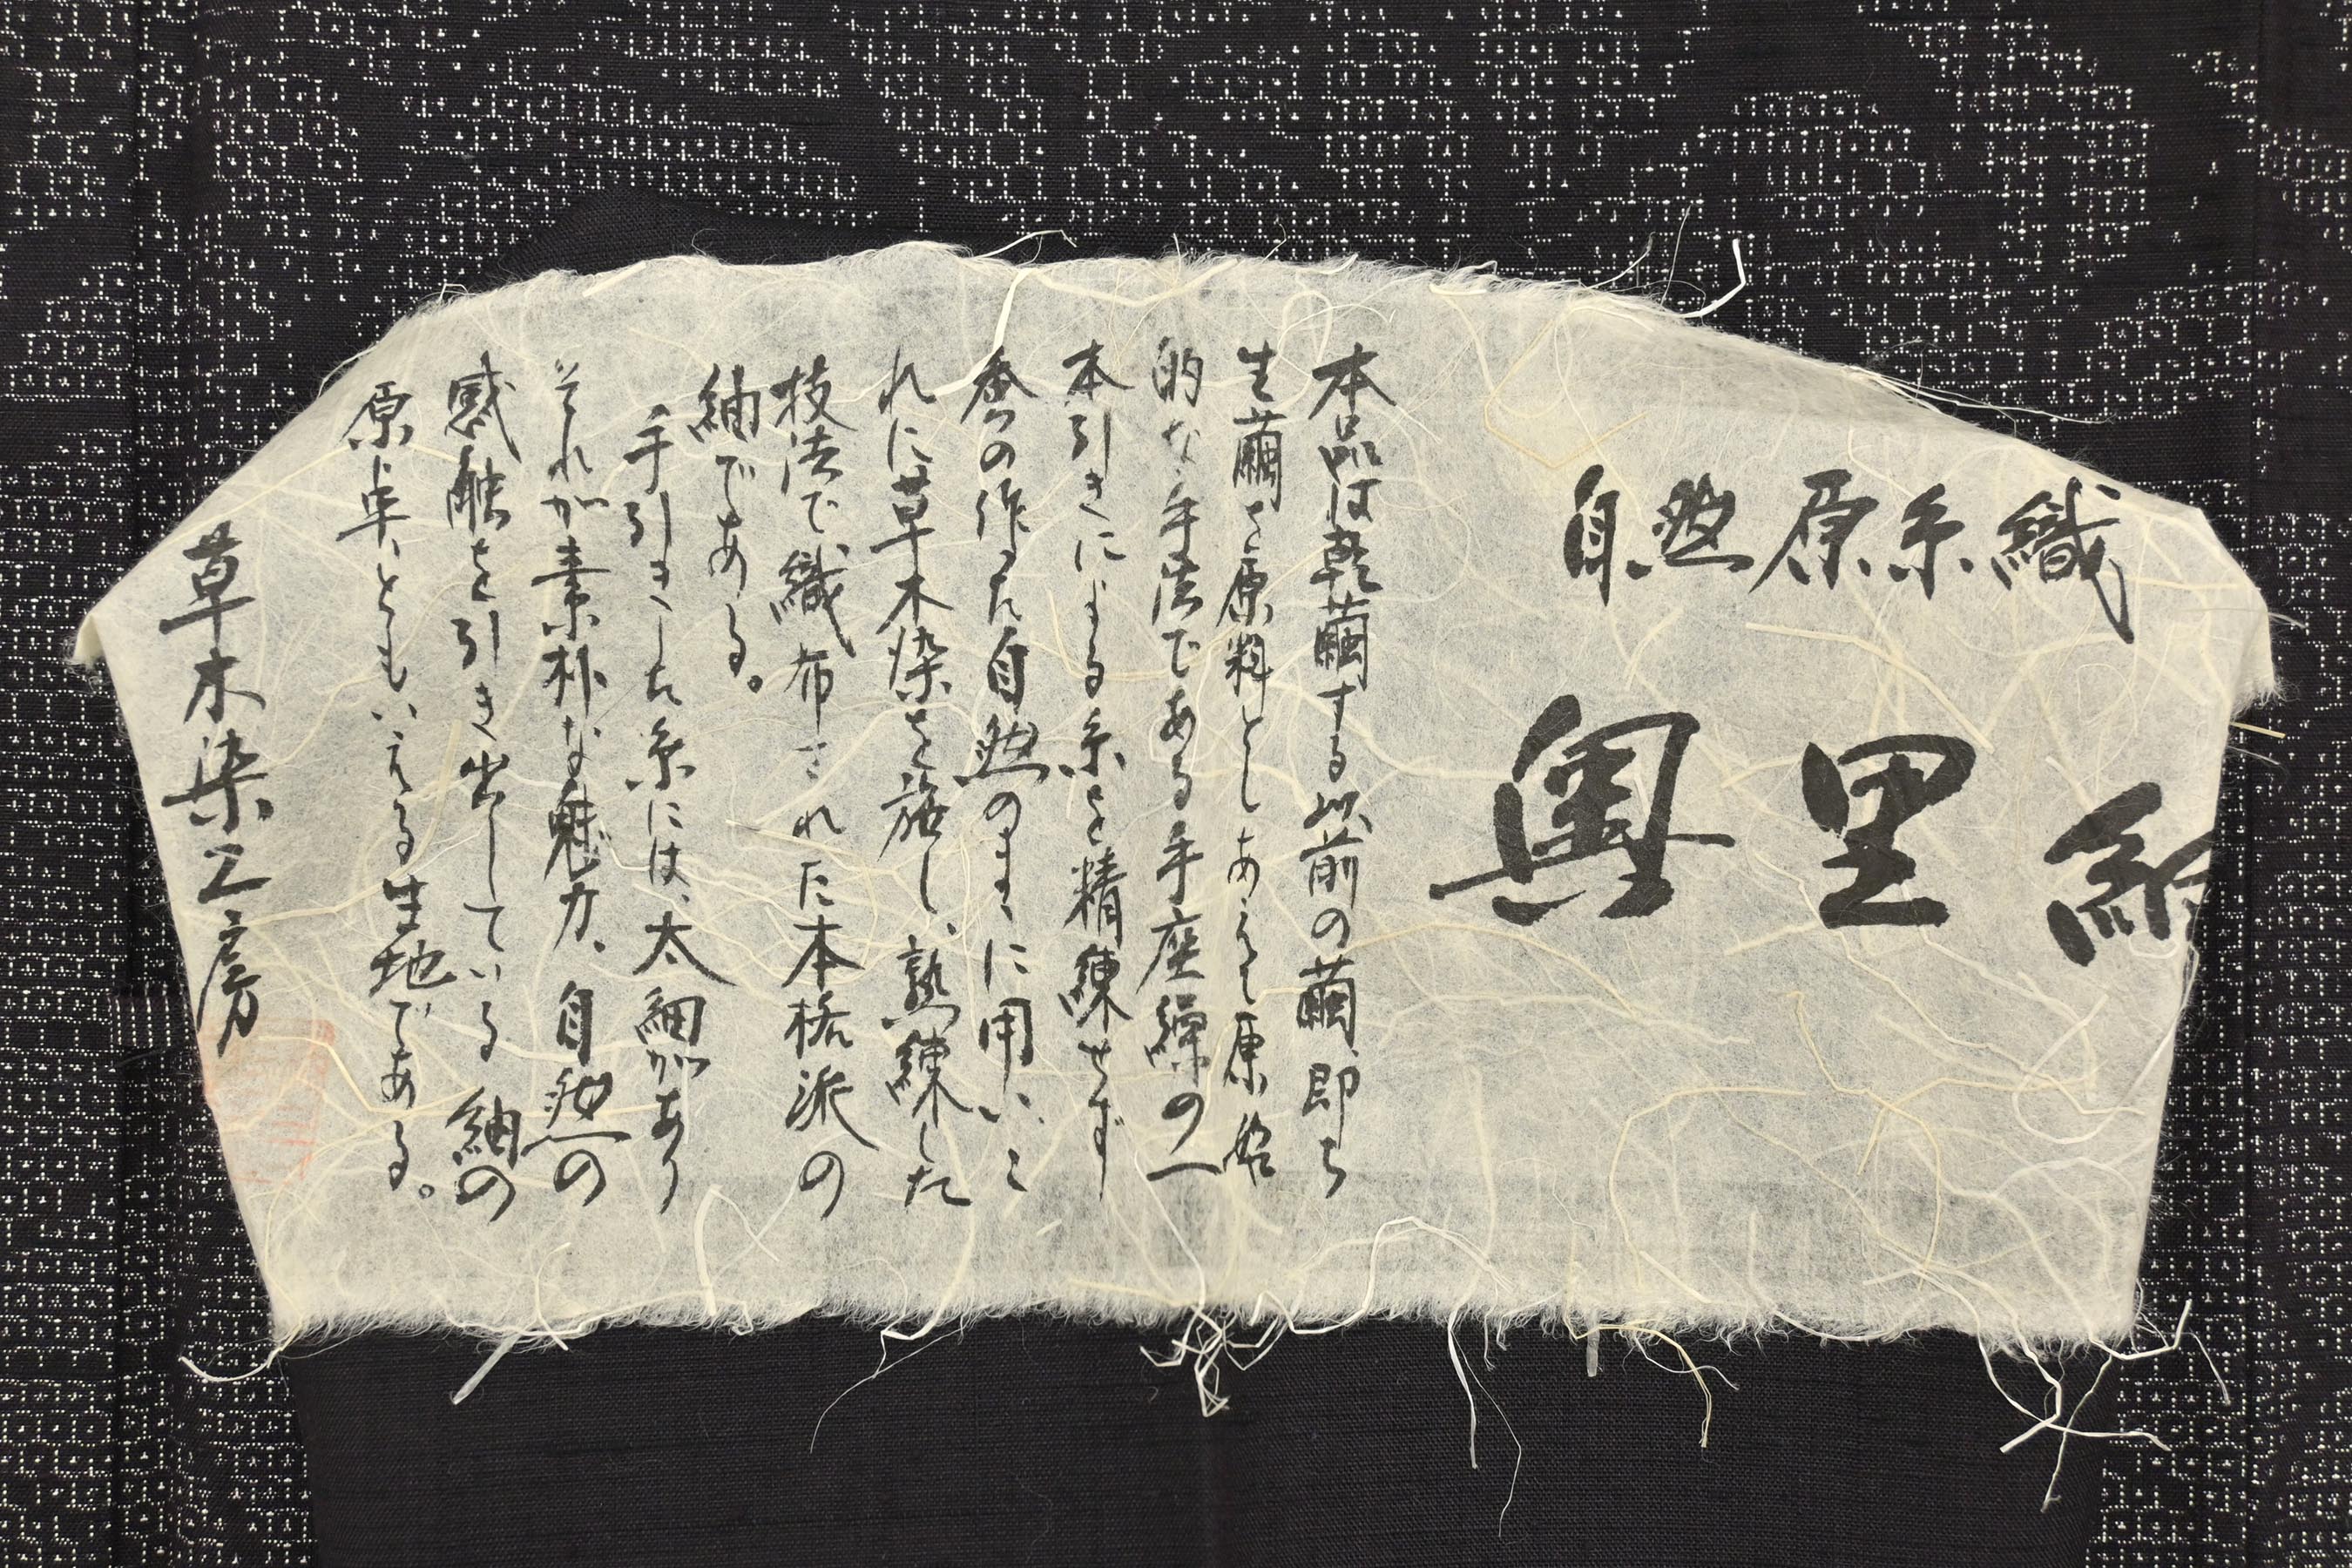 自然原糸織
奥里紬
本品は乾繭する以前の繭、即ち
生繭を原料としあえて原始
的な手法である手座繰の一
本引きによる糸を精練せず
蚕の作った自然のまゝに用いこ
れに草木染を施し、熟練した
技法で織布された本格派の
紬である。
手引きした糸には、太細があり
それが素朴な魅力、自然の
感触を引き出している紬の
原点ともいえる生地である。
草木染工房